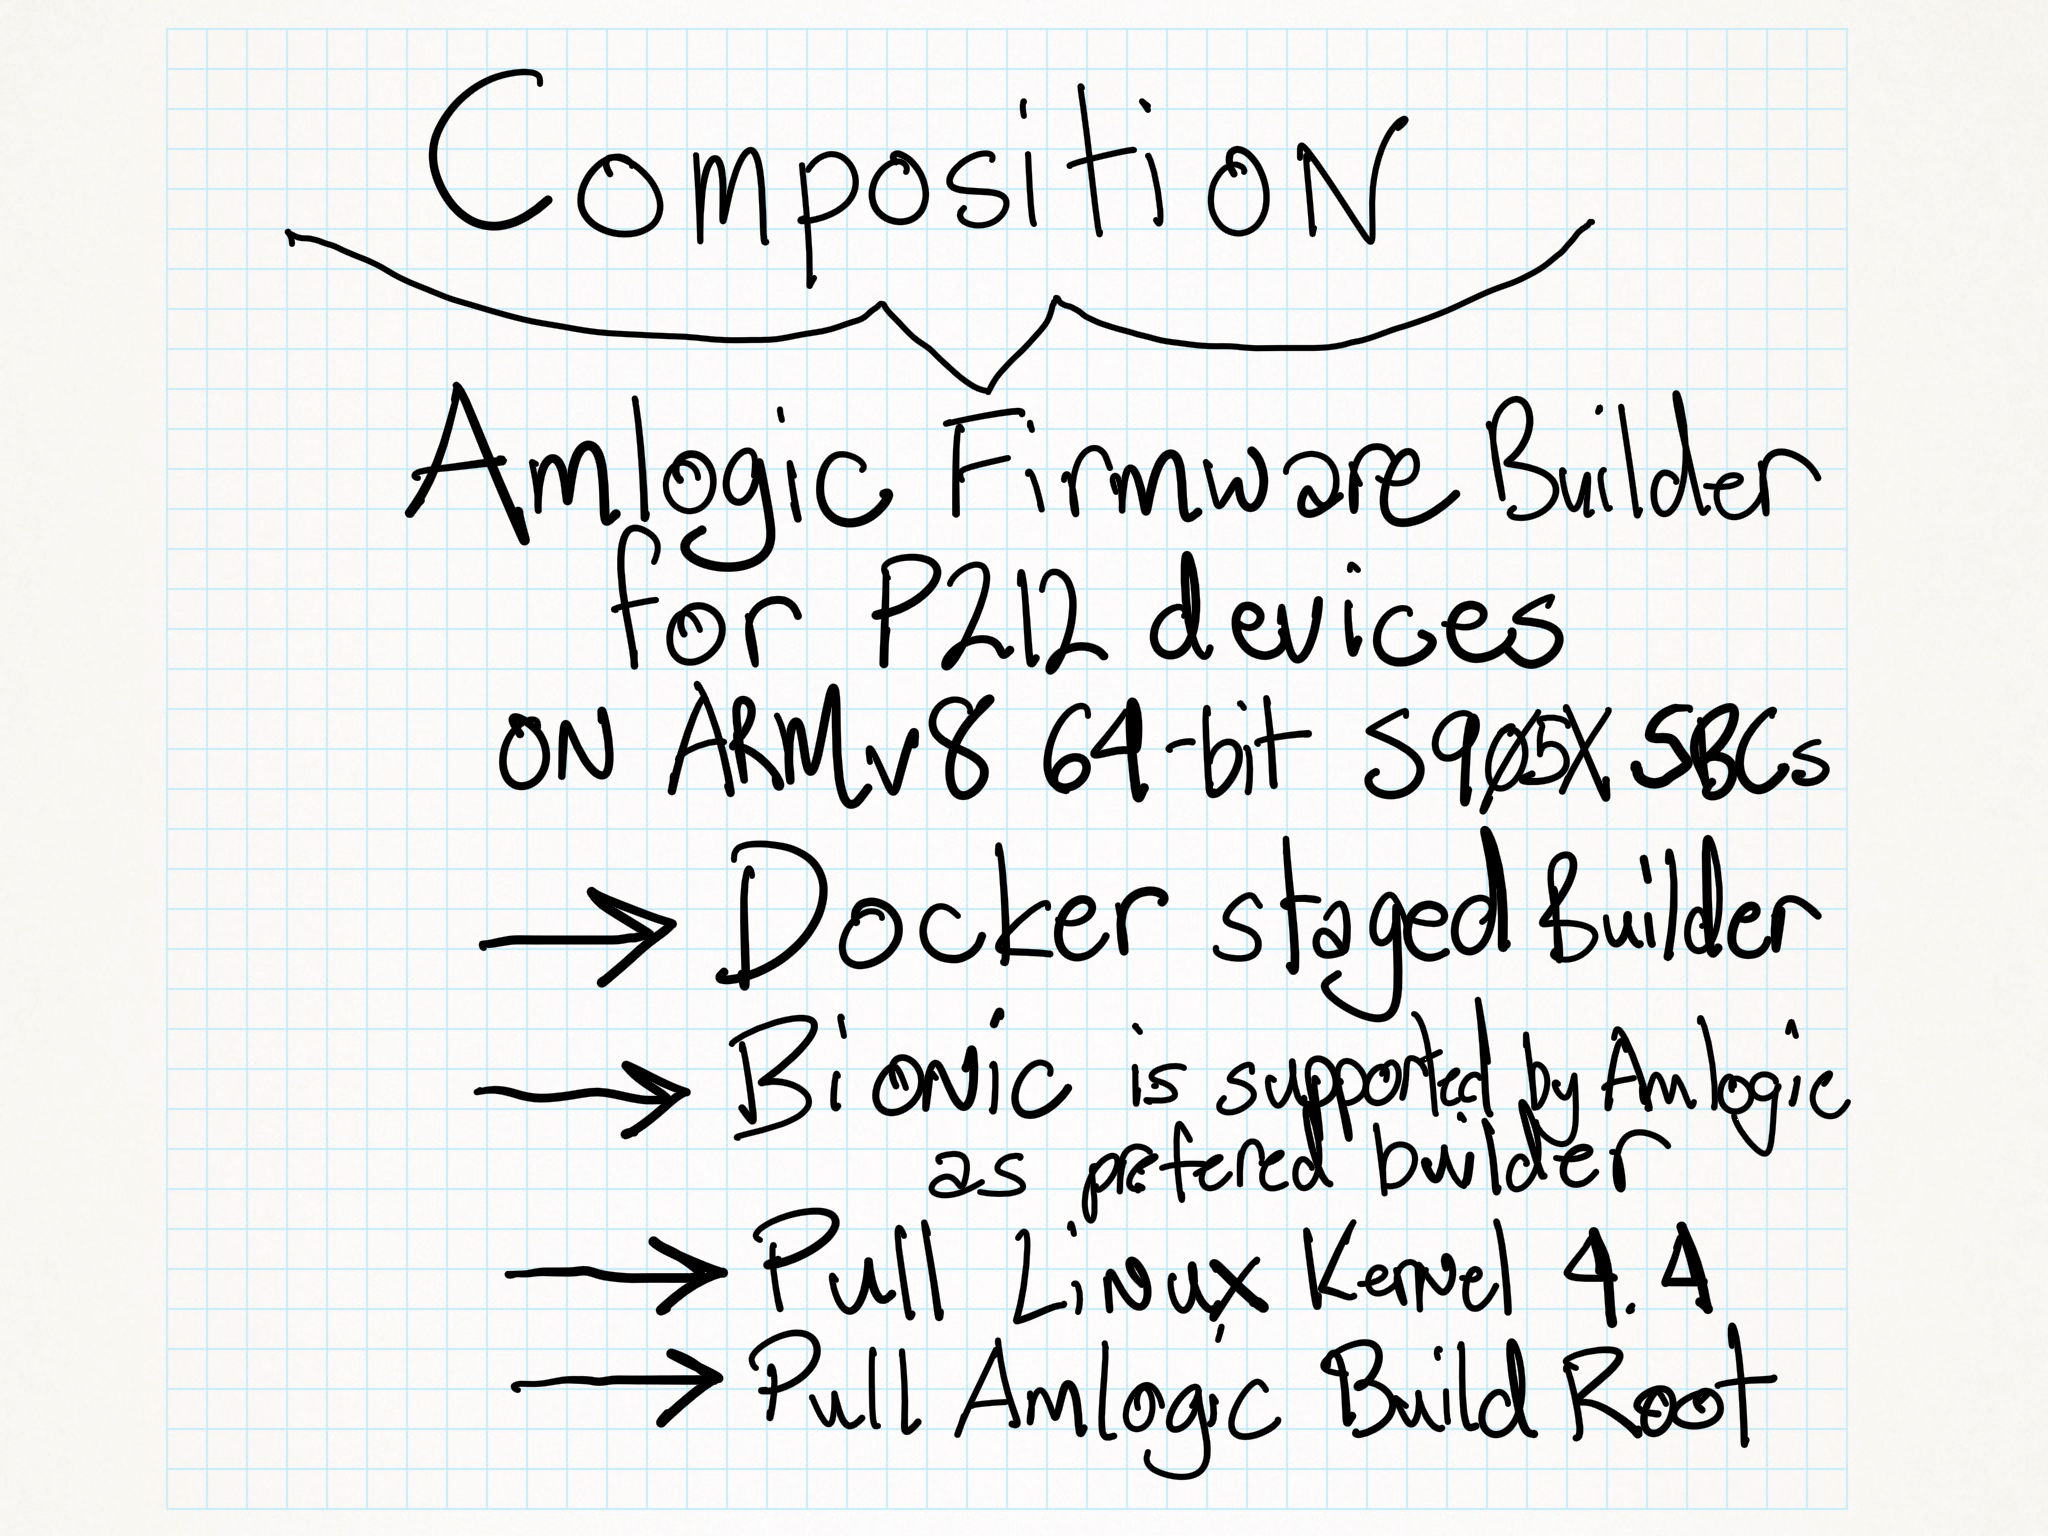 Composition
Amlogic Firmware Builder
for P212 devices
on ARMv8 64-bit S905X SBCs
→ Docker staged Builder
→ Bionic is supported by Amlogic
as prefered builder
→ Pull Linux Kernel 4.4
→ Pull Amlogic Build Root